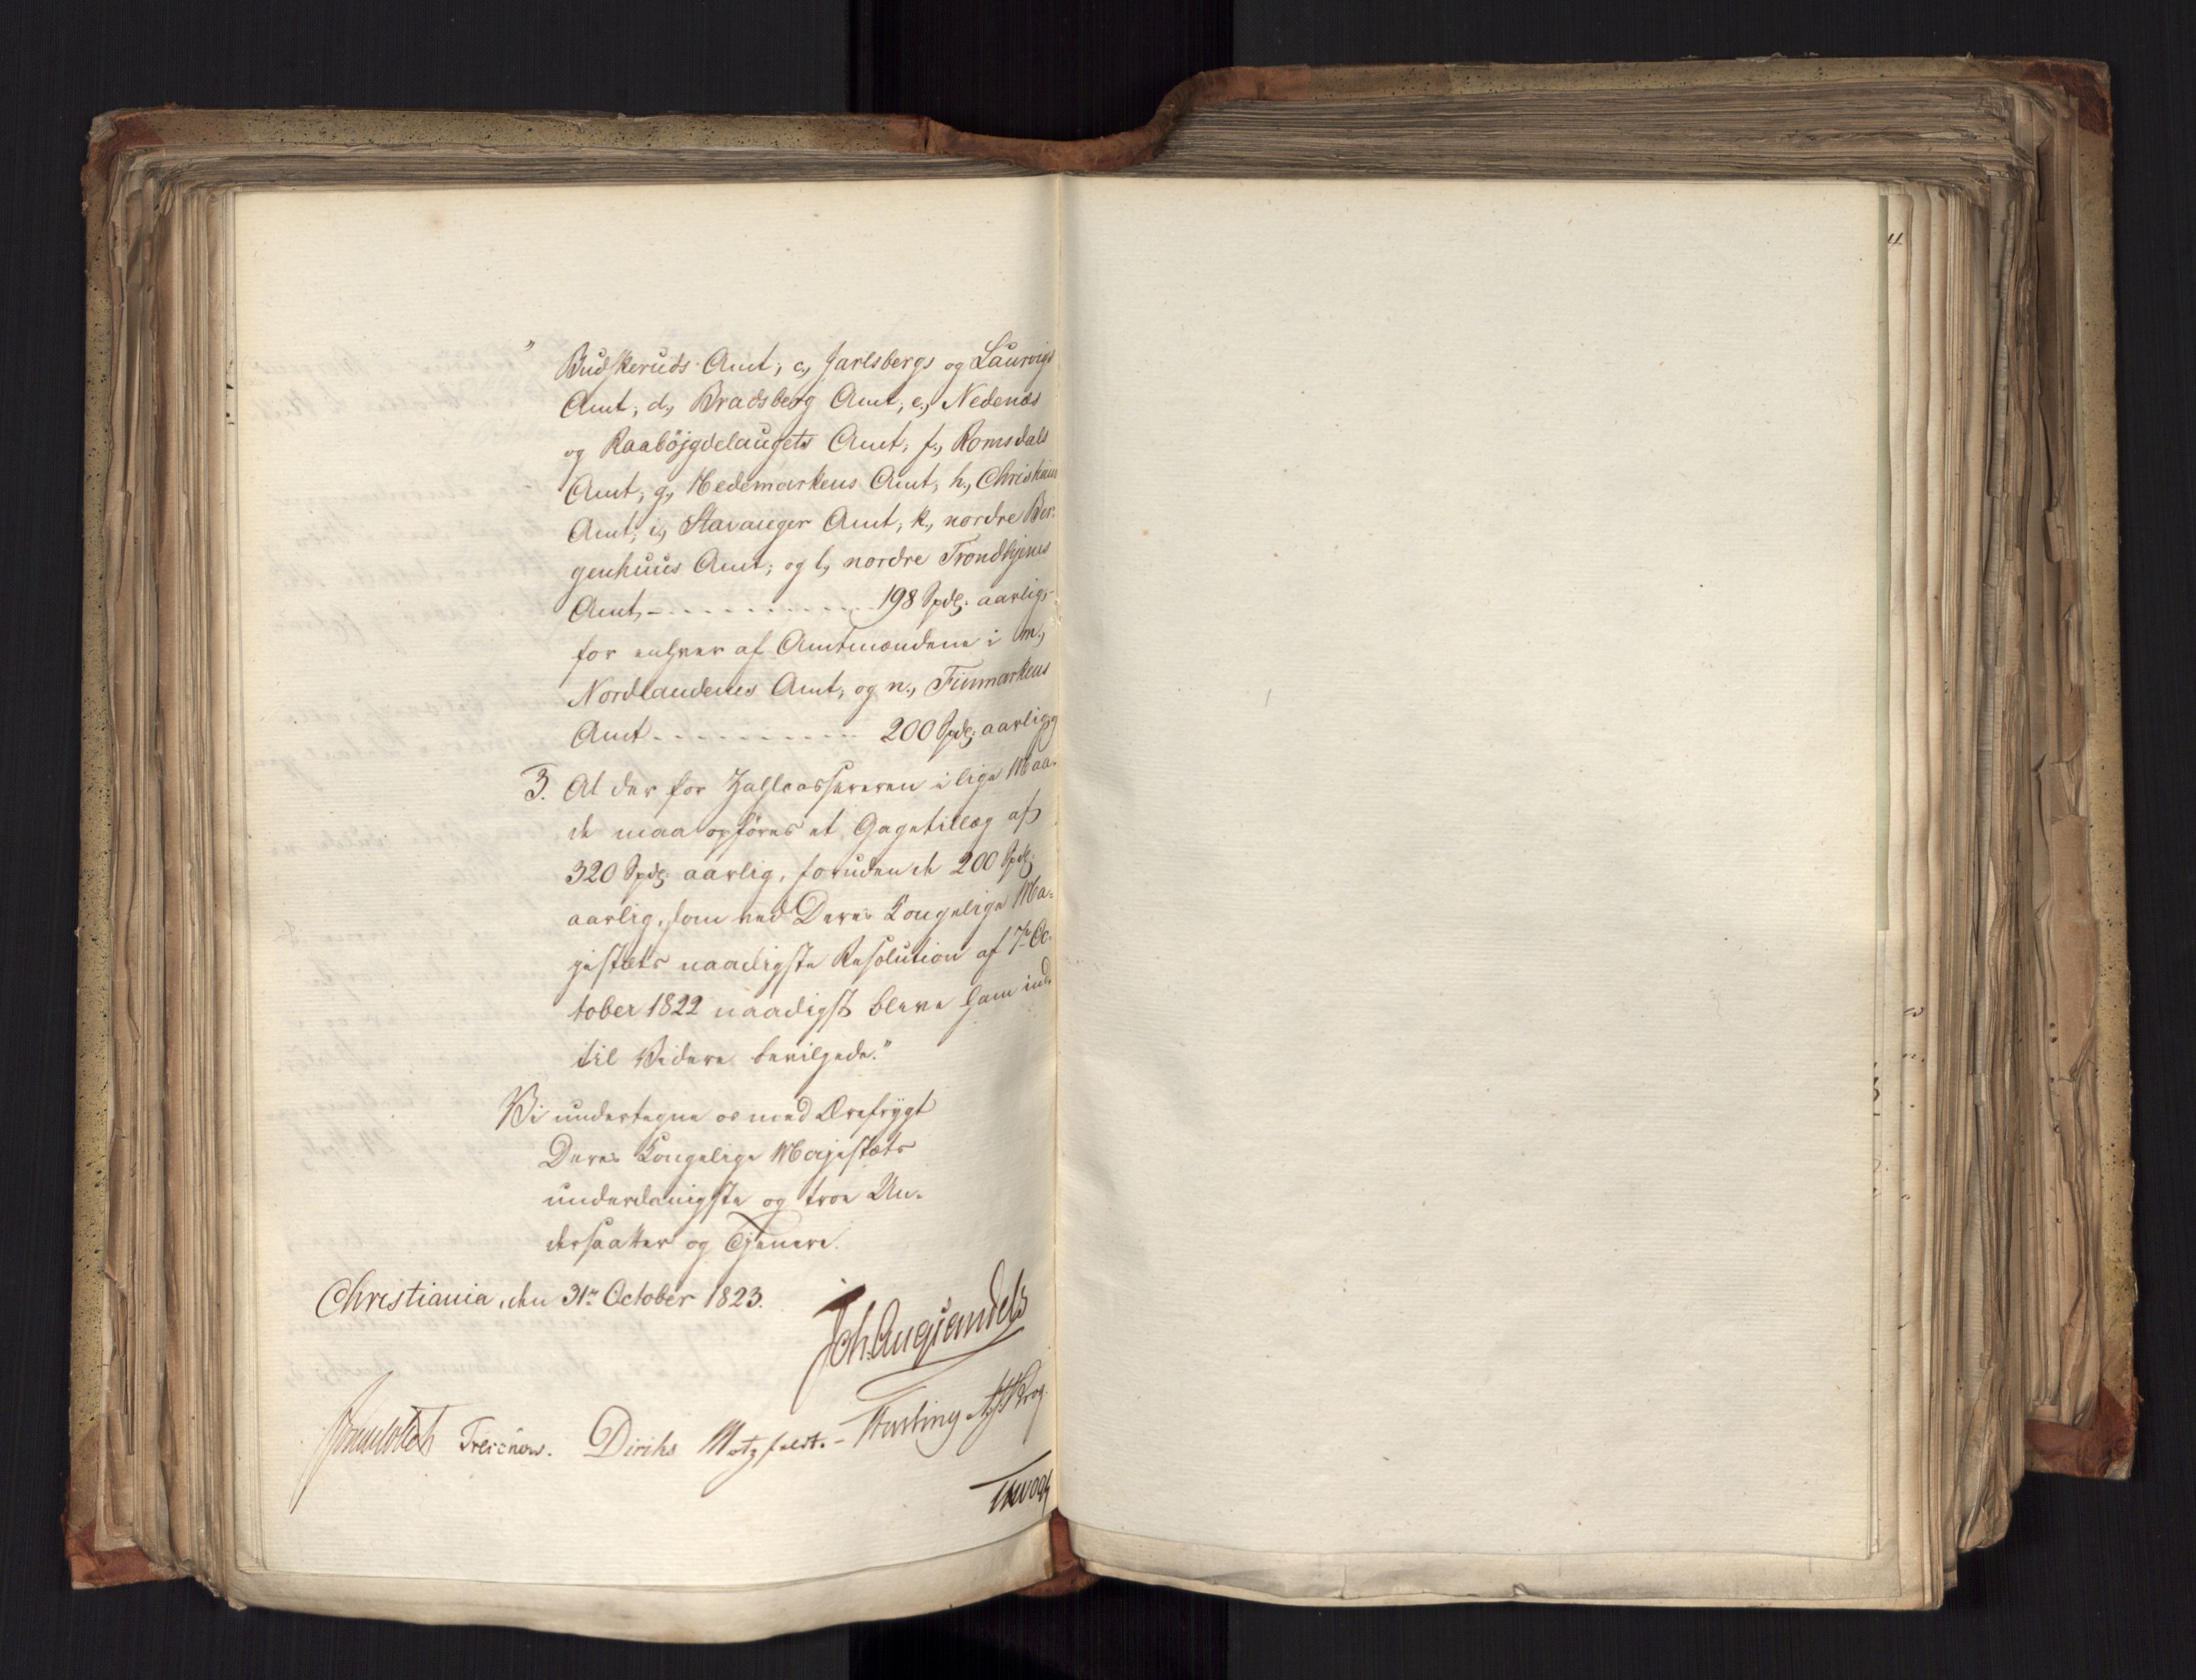 " Budskeruds Amt; c, Jarlsbergs og Laurvigs
Amt; d, Bradsberg Amt; e, Nedenæs
og Raabøjgdelaugets Amt; f, Romsdals
Amt; g, Hedemarkens Amt; h, Christians
Amt; i, Stavanger Amt; k, nordre Ber-
genhuus Amt; og l, nordre Trondhjems
Amt - - - - - - - - - - - 198 Spdl: aarlig;
for enhver af Amtmændene i m,
Nordlandenes Amt; og n, Finmarkens
Amt - - - - - - - - - - 200 Spdl: aarlig; og
3. At der for Zahlcassereren i lige Maa-
de maa opføres et Gagetillæg af
320 Spdl: aarlig, foruden de 200 Spdl:
aarlig, som ved Deres Kongelige Ma-
jestæts naadigste Resolution af 7de Oc-
tober 1822 naadigst bleve ham ind-
til Videre bevilgede."
Vi undertegne os med Ærefrygt
Deres Kongelige Majestæts
underdanigste og troe Un-
dersaatter og Tjenere.
Christiania, den 31te October 1823.
Joh. Aug. Sandels
Sommerhielm Treschow. Diriks Motzfeldt. Fasting Krog